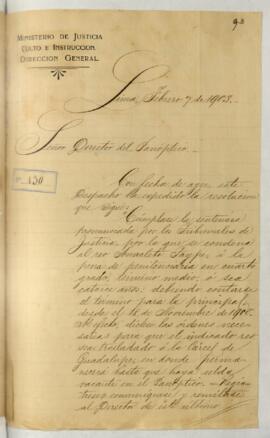 93
MINISTERIO DE JUSTICIA
CULTO E INSTRUCCION
DIRECCION GENERAL
Lima, Febrero 7 de 1903.
Señor Director del Panóptico.
Nº 130
Con fecha de ayer este
Despacho ha expedido la resolucion
que sigue:
Cúmplase la sentencia
pronunciada por los Tribunales de
Justicia, por la que se condena
al reo Amaleto á la
pena de penitenciaria en cuarto
grado, termino medio, ó sea
catorce años; debiendo contarse
el termino para la principal
desde el 16 de Noviembre de
dicten las órdenes necesa
rias para que el indicado reo
sea trasladado á la Carcel de
Guadalupe, en donde perma
necerá hasta que haya celda
vacante en el Panóptico. Regis
trese, comuníquese y remítase
al Director de este ultimo